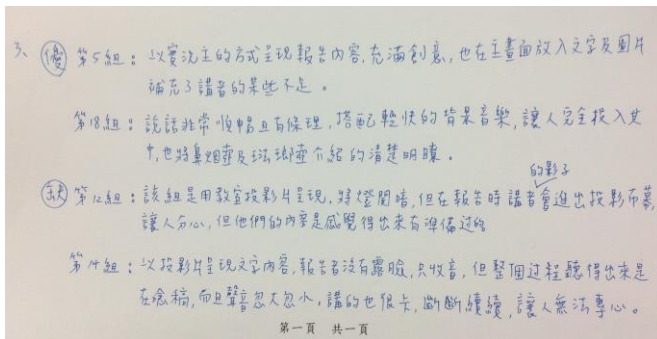 3、優 第5組：以實況主的方式呈現報告內容，充滿創意，也在主畫面放入文字及圖片
補充了講者的某些不足。
第18組：說話非常順暢且有條理，搭配輕快的背景音樂，讓人完全投入其
中，也將鼻煙壺及琺瑯壺介紹的清楚明瞭。
的影子
缺 第12組：該組是用教室投影片呈現，將燈關暗，但在報告時講者會進出投影布幕，
讓人分心，但他們的內容是感覺得出來有準備过的
第14組：以投影片呈現文字內容，報告者沒有露臉，只收音，但整個过程聽得出來是
在唸稿，而且聲音忽大忽小，講的也很卡，斷斷續續，讓人無法專心。
第一頁 共一頁